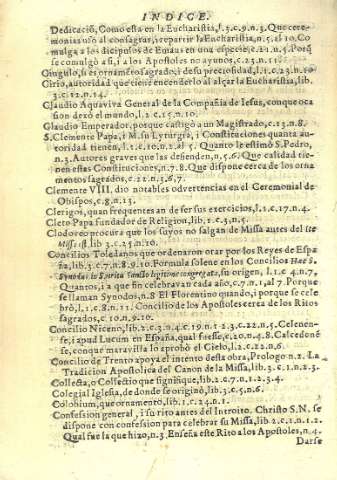 INDICE.
Dedicació, Como esta en la Eucharistia, l.3.c.9.n.3. Que cere-
monias uso al consagrar, i repartir la Eucharistia, n.5. al 10. Co-
mulga a los dicipulos de Emaus en una especie, c.21.n.5. Porq̃
se comulgò a si, i a los Apostoles no ayunos, c.23.n.11.
Cingulo, si es ornamẽto sagrado; i de su preciosidad, l.1.c.23.n.10
Cirio, autoridad que tiene encenderlo al alçar la Eucharistia, lib.
3.c.12.n.14.
Claudio Aquaviva General de la Compañia de Iesus, con que oca
sion dexò el mundo, l.2.c.15.n.10.
Claudio Emperador, porque castigò a un Magistrado, c.13.n.8.
S. Clemente Papa, i M. su Lyturgia, i Constituciones quanta au-
toridad tienen, l.1.c.10.n.2. al 5. Quanto le estimò S. Pedro,
n.3. Autores graves que las defienden, n.5.6. Que calidad tie-
nen estas Constituciones, n.7.8. Que dispone cerca de los orna
mentos sagrados, c.22.n.3.6.7.
Clemente VIII, dio notables advertencias en el Ceremonial de
Obispos, c.8.n.13.
Clerigos, quan frequentes an de ser sus exercicios, l.1.c.17.n.4.
Cleto Papa fundador de Religion, lib.1.c.3.n.5.
Clodoreo procura que los suyos no salgan de Missa antes del Ite
Missa est, lib.3.c.25.n.10.
Concilios Toledanos que ordenaron orar por los Reyes de Espa
ña, lib.3.c.7.n.8.9.10. Formula solene en los Concilios Hæc S.
Synodus in Spiritu Sancto legitime congregata, su origen, l.1.c.4.n.7,
Quantos, i a que fin celebravan cada año, c.7.n.1, al 7. Porque
se llaman Synodos, n.8 El Florentino quando, i porque se cele
brò, l.1.c.8.n.11. Concilio de los Apostoles cerca de los Ritos
sagrados, c.10.n.9.10.
Concilio Niceno, lib.2.c.3.n.4.c.19.n.1.2.3.c.22.n.5. Celenen-
se, i apud Lucum en España, qual fuesse, c.20.n.4.8. Calcedonẽ
se, con que maravilla lo aprobò el Cielo, l.2.c.22.n.6.
Concilio de Trento apoya el intento desta obra, Prologo n.2. La
Tradicion Apostolica del Canon de la Missa, lib.3.c.1.n.1.2.
Collecta, o Collectio que significue, lib.2.c.7.n.1.2.3.4.
Colegial Iglesia, de donde se originò, lib.3.c.5.n.6.
Colobium, que ornamento, lib.1.c.24.n.1.
Confession general, i su rito antes del Introito. Christo S.N. se
dispone con confession para celebrar su Missa, lib.2.c.1.n.1.2.
Qual fue la que hizo, n.3. Enseña este Rito a los Apostoles, n.4.
Darse